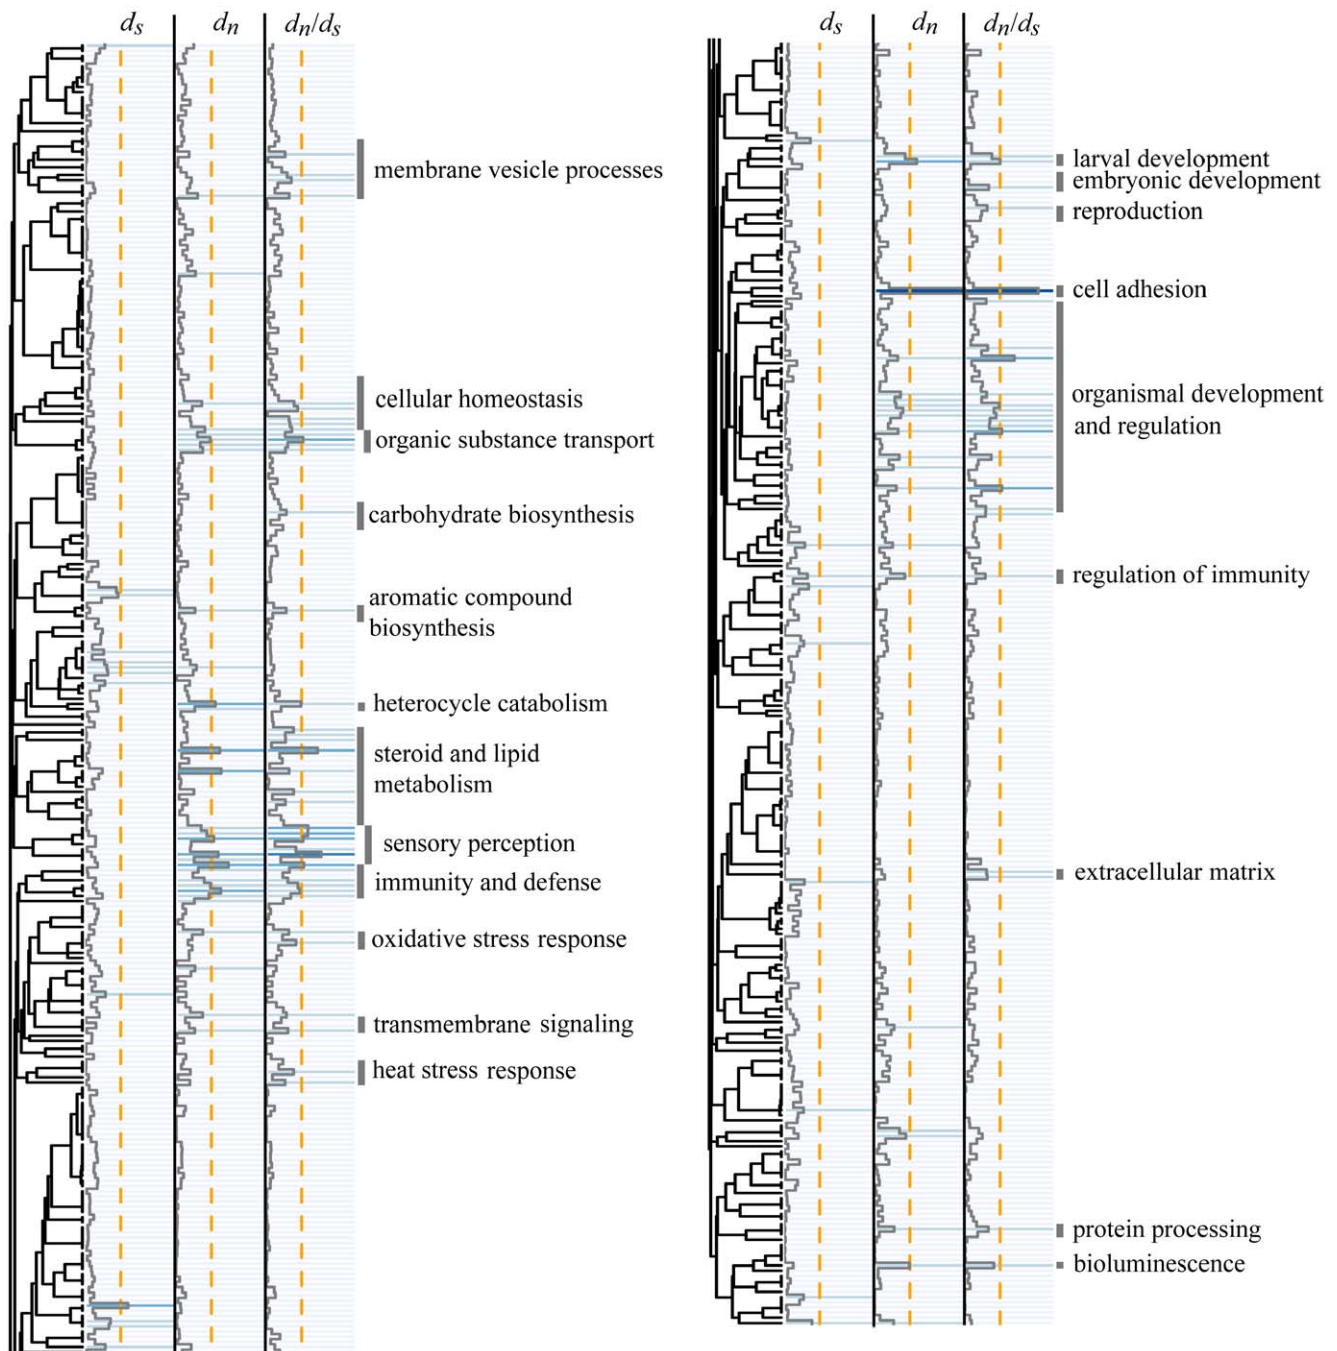 ds dn dn/ds
membrane vesicle processes
cellular homeostasis
organic substance transport
carbohydrate biosynthesis
aromatic compound
biosynthesis
heterocycle catabolism
steroid and lipid
metabolism
sensory perception
immunity and defense
oxidative stress response
transmembrane signaling
heat stress response
ds dn dn/ds
larval development
embryonic development
reproduction
cell adhesion
organismal development
and regulation
regulation of immunity
extracellular matrix
protein processing
bioluminescence